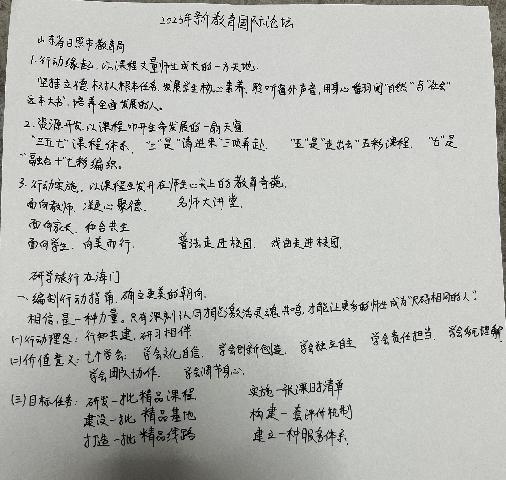 2023年新教育国际论坛
山东省日照市教育局
1.行动缘起,以课程丈量师生成长的一方天地.
坚持立德树人根本任务,发展学生核心素养,聆听窗外声音,用身心翻阅"自然"与"社会"
这本大书,培养全面发展的人。
2.资源开发,以课程叩开生命发展的一扇天窗
"三五七"课程体系, "三"是"请进来"三项 "五"是"走出去"五彩课程, "七"是
"融合十"七彩编织。
3.行动实施,以课程开在师生心尖上的教育奇葩.
面向教师,凝心聚德. 名师大讲堂,
面向家长,和合共生
面向学生,向美而行. 普法走进校园. 戏曲走进校园.
研学旅行在海门
一、编制行动指南,确立更美的朝向.
相信,是一种力量。只有深刻认同才能激活灵魂共鸣,才能让更多的师生成为"尺码相同的人".
(一)行动理念:行知共建,研习相伴.
(二)价值意义:七个学会: 学会文化自信. 学会创新创造, 学会独立自主 学会责任担当. 学会
学会团队协作. 学会调节身心.
(三)目标任务: 研发一批精品课程. 实施一张课时清单
建设一批精品基地 构建一套评价机制
打造一批精品线路 建立一种服务体系.